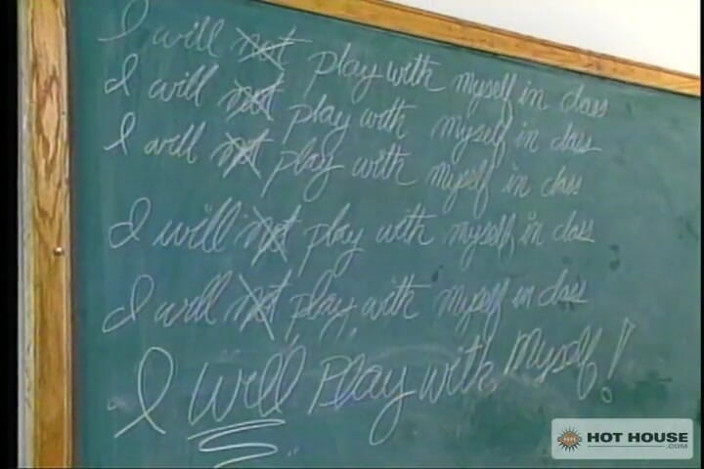 I will not play with myself in class
I will not play with myself in class
I will not play with myself in class
I will not play with myself in class
I will not play with myself in class
I will play with myself!
HOT HOUSE
.COM